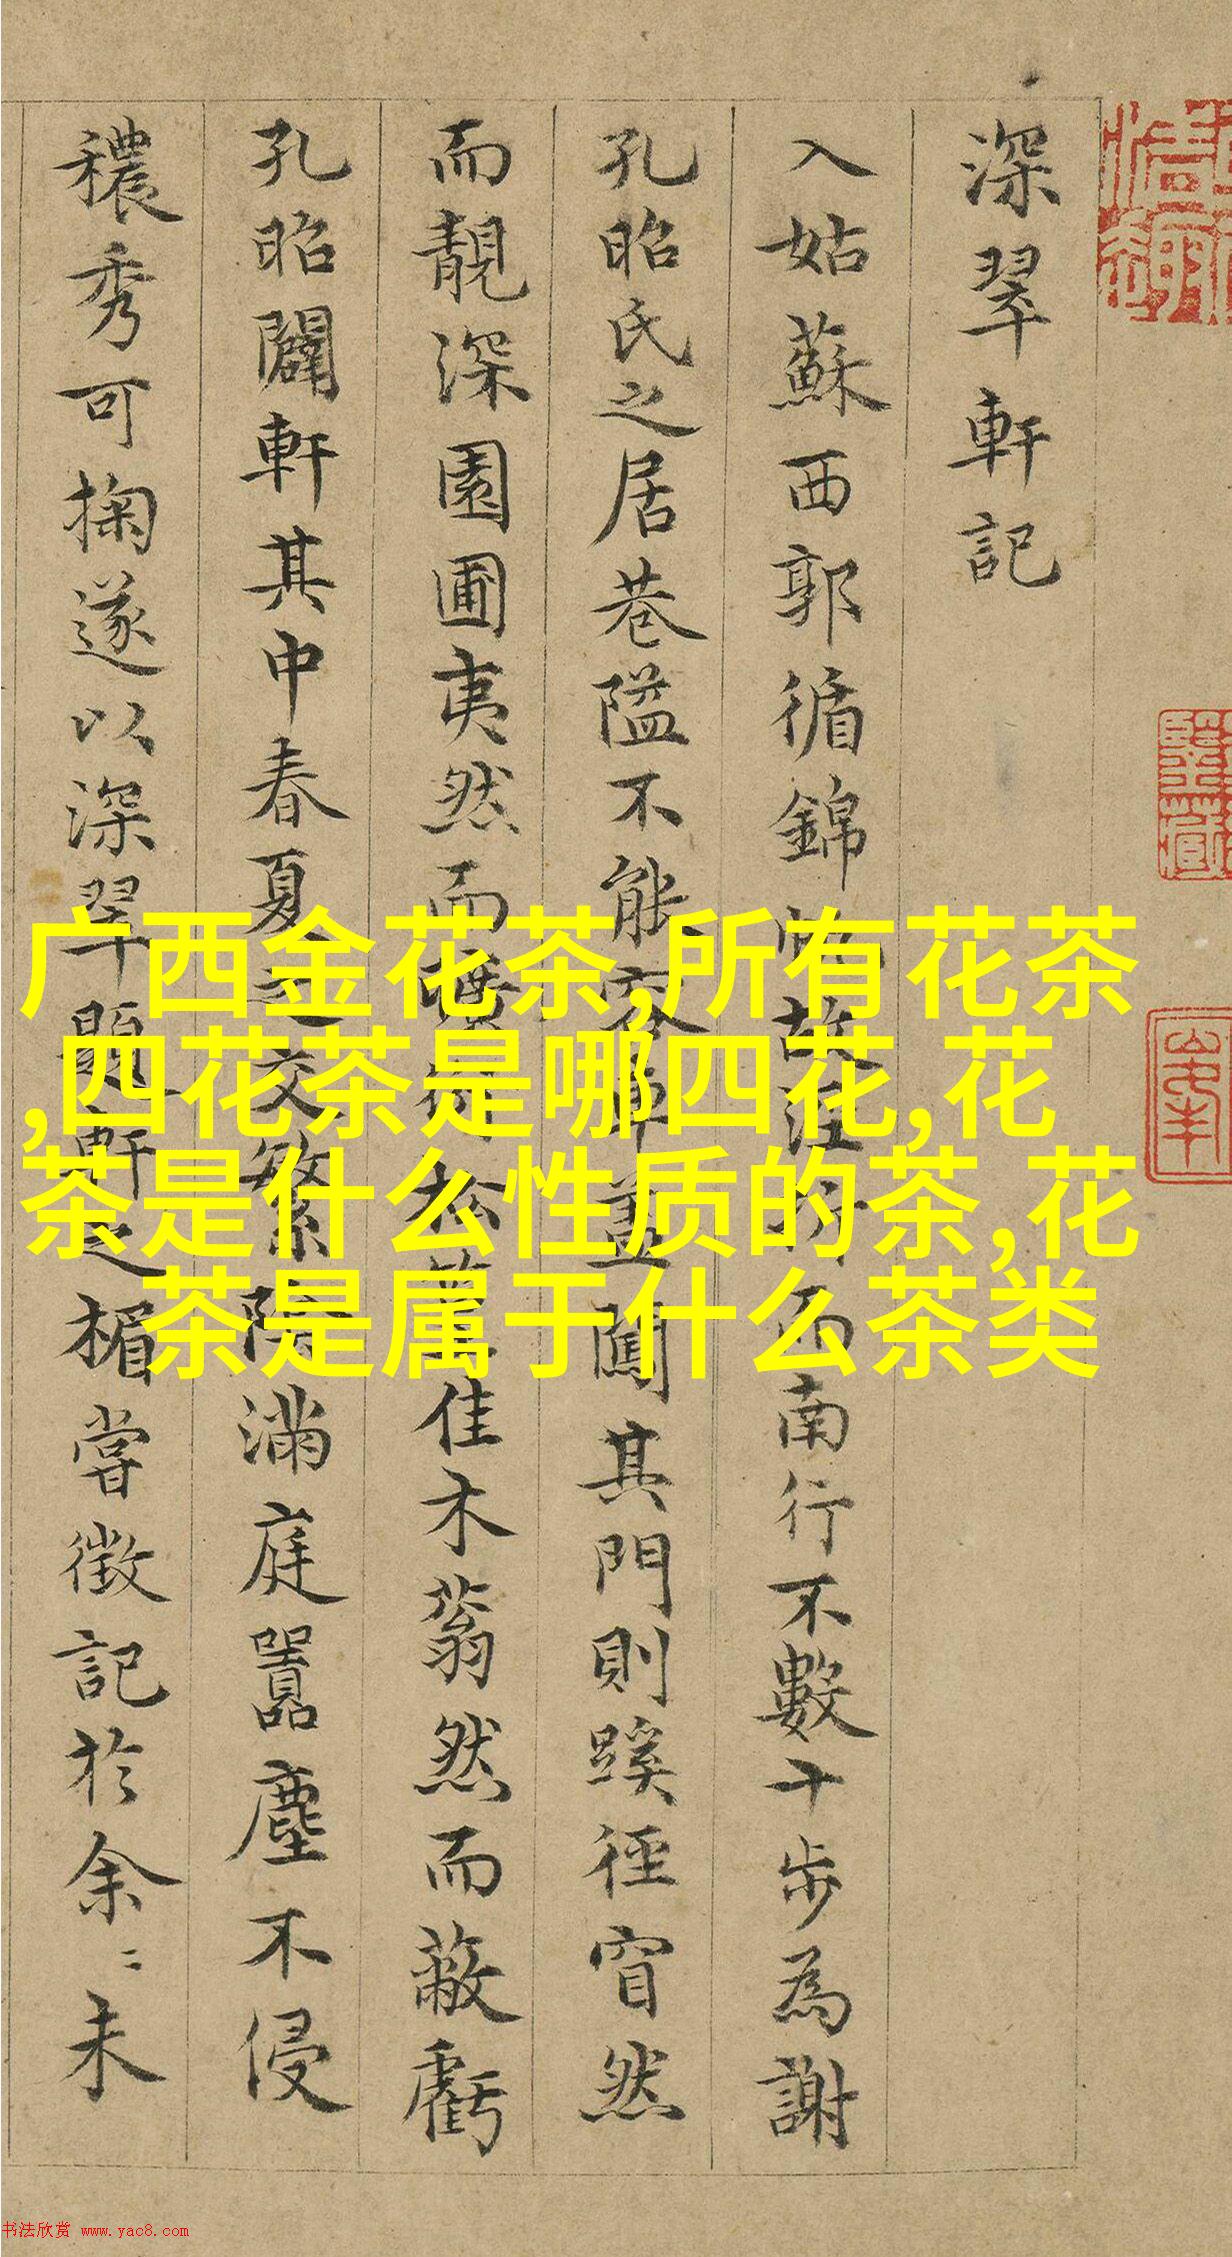 深翠軒記
入姑蘇西郭循錦帆故涇折而南行不數十步為謝
孔昭氏之居巷隘不能容車盖闖其門則蹊徑窅然
而靚深園圃夷然而曠衍松篁佳木蓊然而蔽虧
孔昭闢軒其中春夏之交繁陰滿庭囂塵不侵
穠秀可掬遂以深翠題軒之楣嘗徵記於余〻未
广西金花茶,所有花茶
,四花茶是哪四花,花
茶是什么性质的茶,花
茶是属于什么茶类
书法欣赏 www.yac8.com